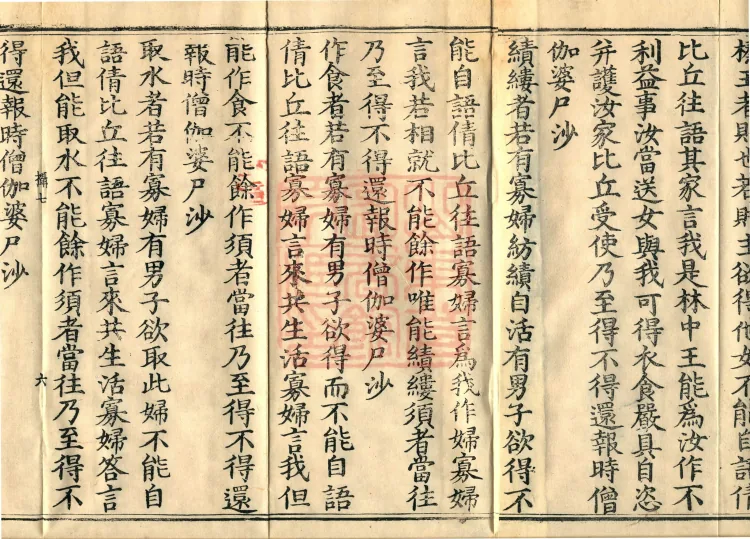 林王者則也者則王欲得他女不能自語倩
比丘往語其家言我是林中王能為汝作不
利益事汝當送女與我可得衣食嚴具自恣
并護汝家比丘受使乃至得不得還報時僧
伽婆尸沙
績縷者若有寡婦紡績自活有男子欲得不
能自語倩比丘往語寡婦言為我作婦寡婦
言我若相就不能餘作唯能績縷須者當往
乃至得不得還報時僧伽婆尸沙
作食者若有寡婦有男子欲得而不能自語
倩比丘往語寡婦言來共生活寡婦言我但
能作食不能餘作須者當往乃至得不得還
報時僧伽婆尸沙
取水者若有寡婦有男子欲取此婦不能自
語倩比丘往語寡婦言來共生活寡婦答言
我但能取水不能餘作須者當往乃至得不
攝七 六
得還報時僧伽婆尸沙